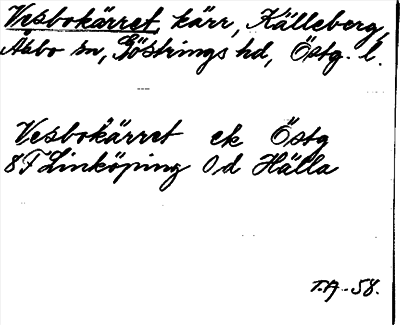 Vesbokärret, kärr, Källeberg,
Åsbo sn, Göstrings hd, Östg. l.
Vesbokärret ek Östg
8F Linköping 0d Hälla
T.A. -58.